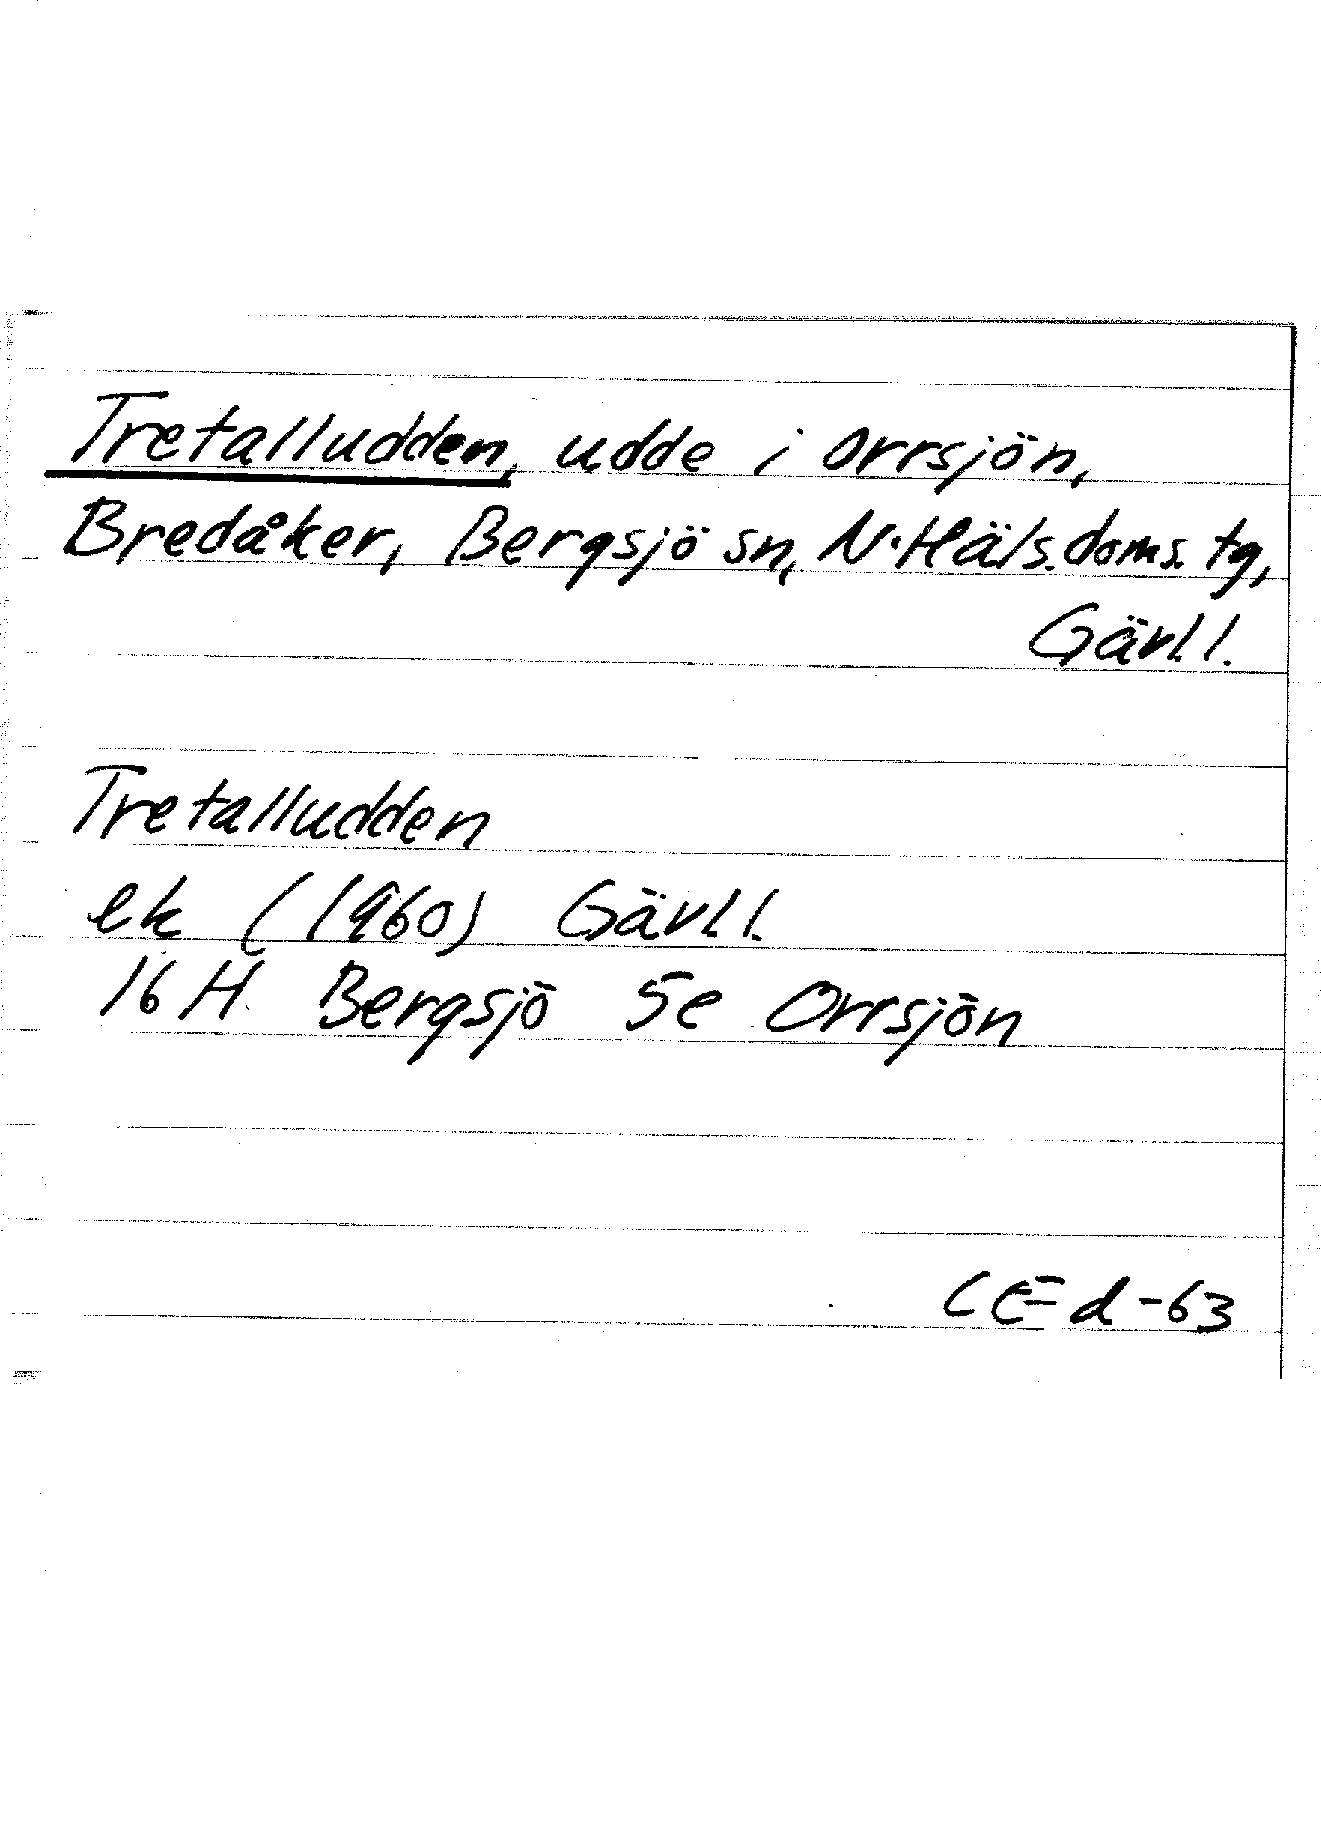 Tretalludden, udde i Orrsjön,
Bredåker, Bergsjö sn, N. Häls. doms. tg,
Gävl.l.
Tretalludden
ek (1960) Gävl.l.
16 H Bergsjö 5e Orrsjön
CEd -63